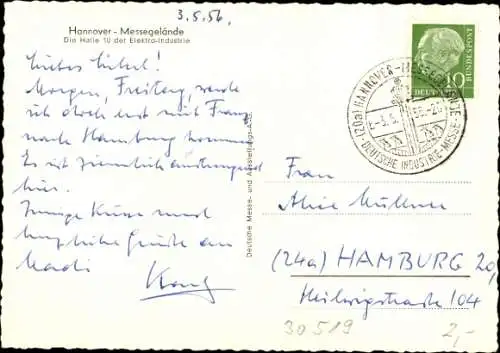 3.5.56.
Hannover - Messegelände
Die Halle 10 der Elektro-Industrie
Liebes
Morgen, Freitag, werde
ich doch erst mit Franz
nach Hamburg kommen.
Es ist ziemlich anstrengend
hier.
Innige Küsse und
herzliche Grüße an
Karl
Deutsche Messe- und Ausstellungs-A.G.
10
DEUTSCHE
BUNDESPOST
(20a) HANNOVER-MESSEGELÄNDE
-3.5.56.-20
DEUTSCHE INDUSTRIE-MESSE
Frau
Alice Müllener
(24a) HAMBURG 20,
Heilwigstraße 104
30519
2,-